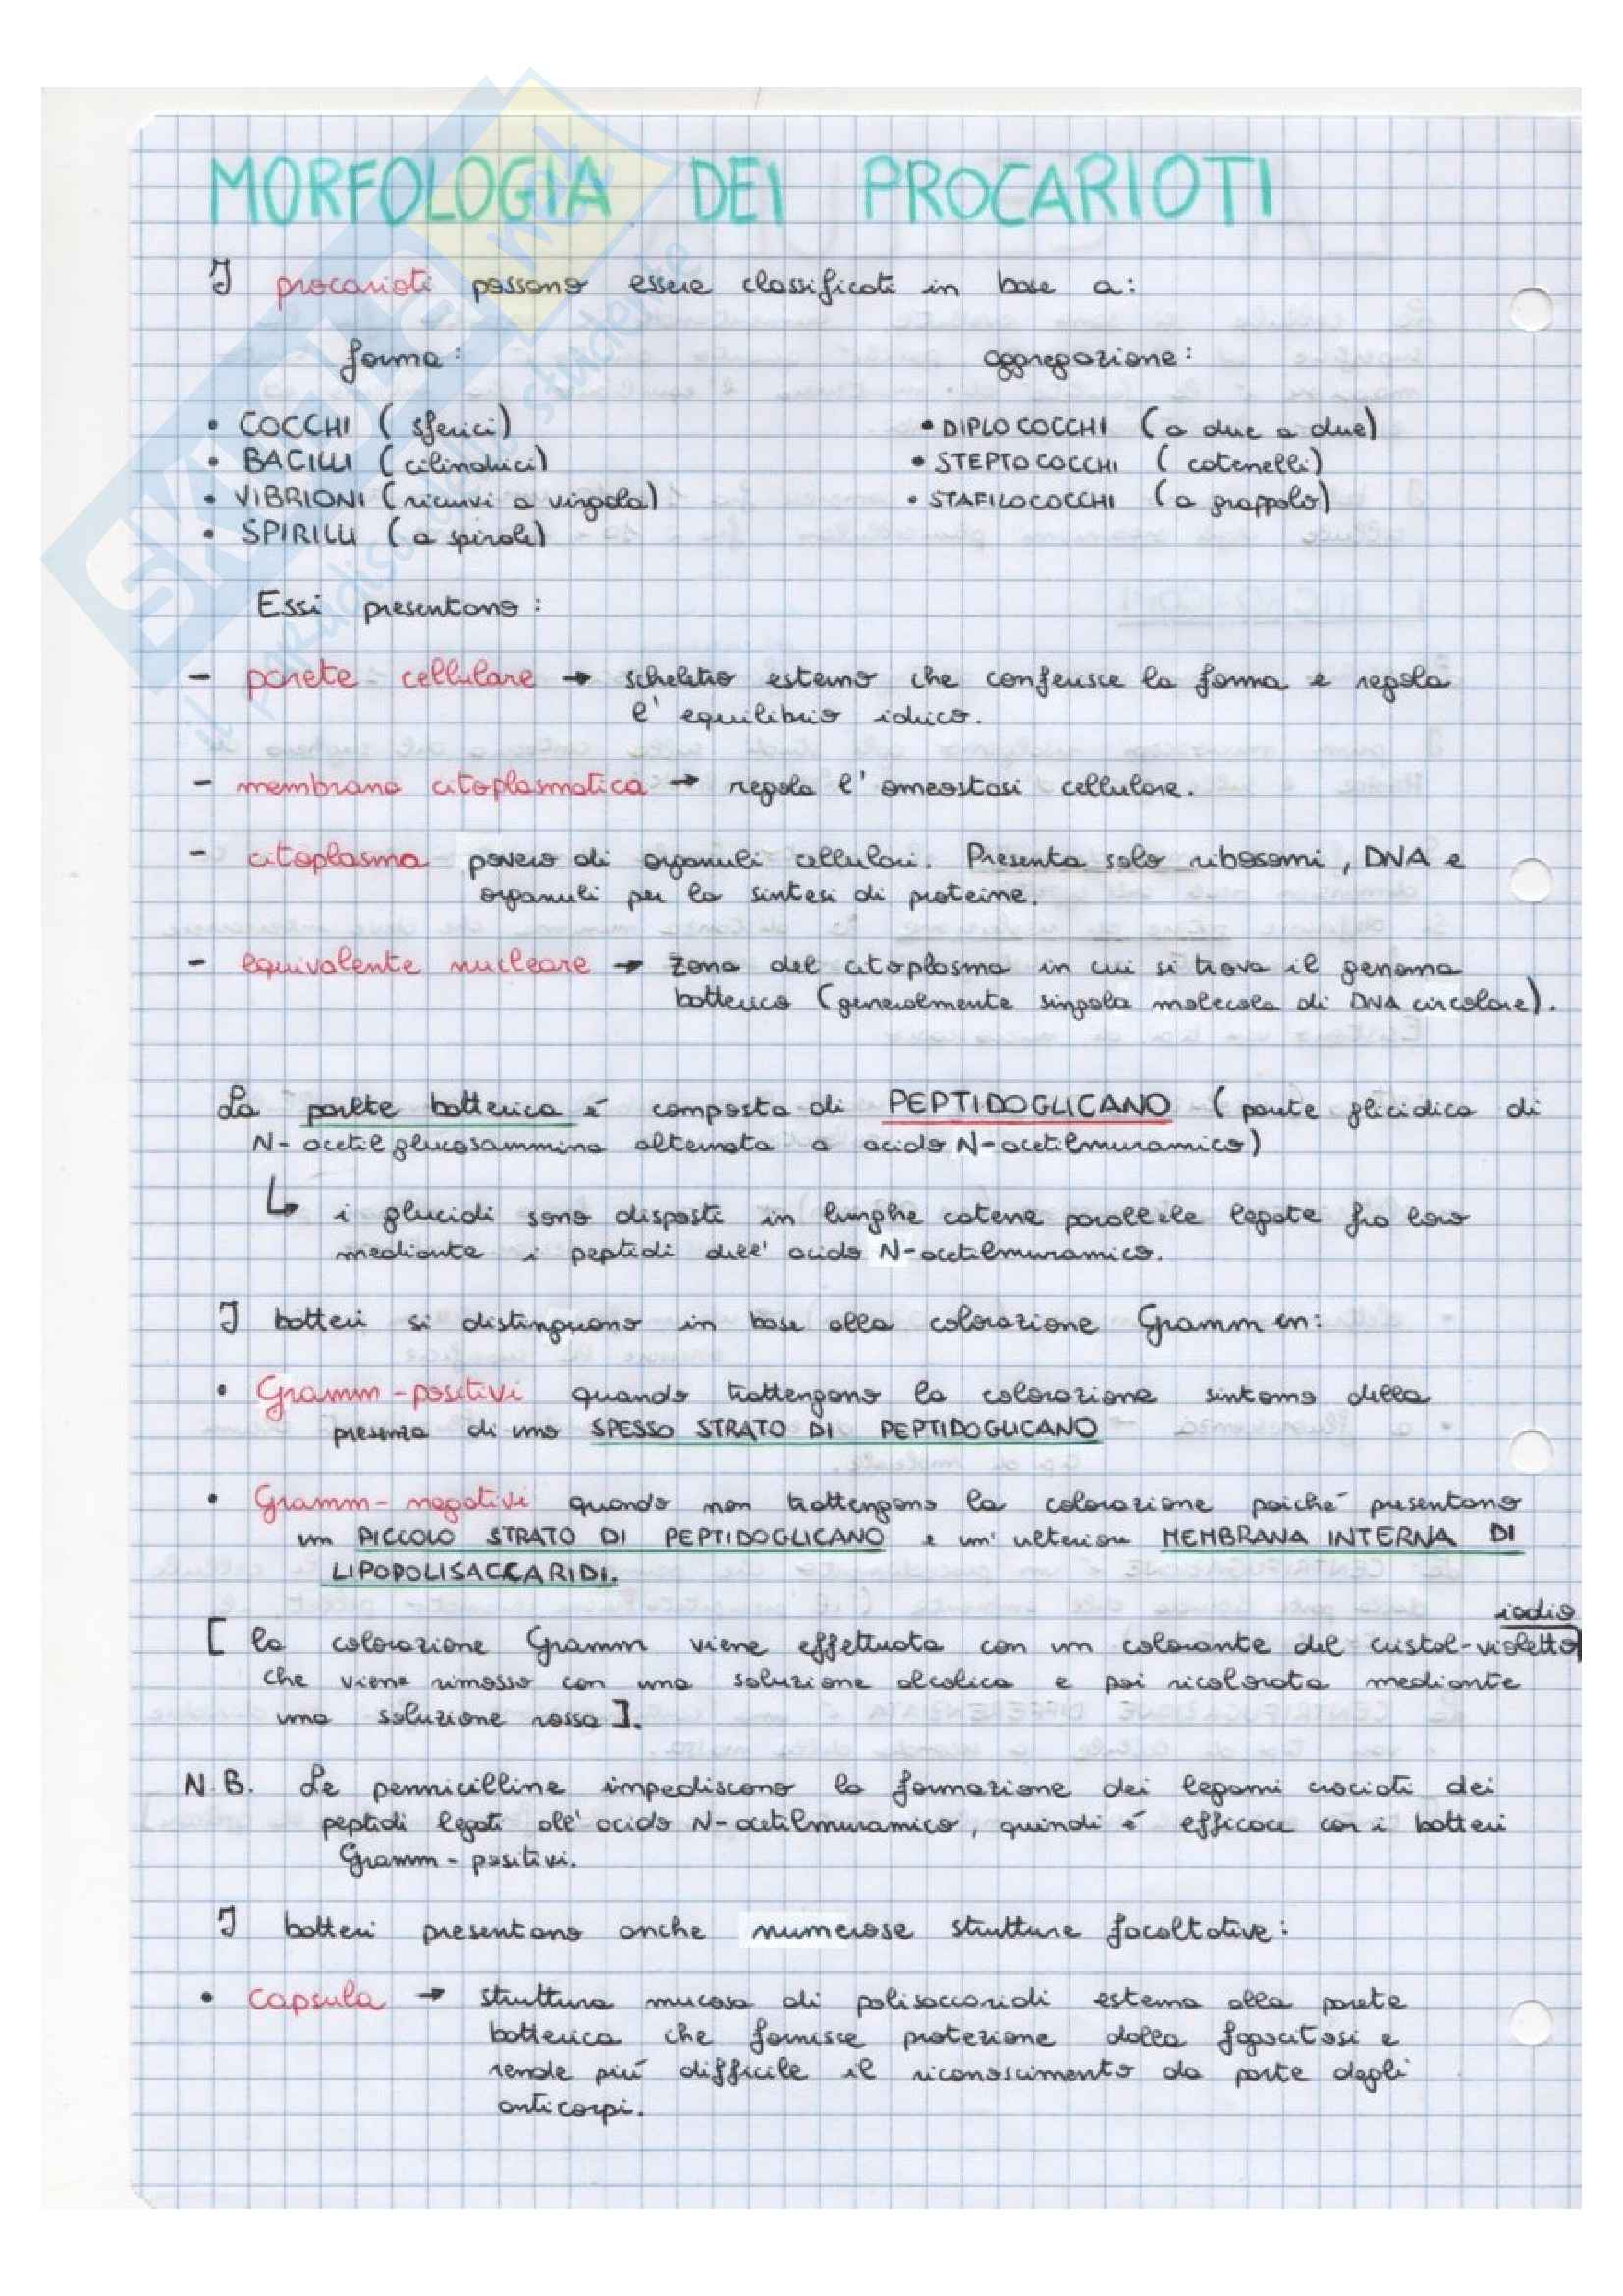 MORFOLOGIA DEI PROCARIOTI
I procarioti possono essere classificati in base a:
forma:
aggregazione:
• COCCHI ( sferici)
• DIPLO COCCHI ( a due a due)
• BACILLI ( cilindrici)
• STEPTO COCCHI ( catenelle)
• VIBRIONI ( ricurvi a virgola)
• STAFILOCOCCHI ( a grappolo)
• SPIRILLI ( a spirale)
Essi presentano:
- parete cellulare → scheletro esterno che conferisce la forma e regola
l' equilibrio idrico.
- membrana citoplasmatica → regola l' omeostasi cellulare.
- citoplasma povero di organuli cellulari. Presenta solo ribosomi, DNA e
organuli per la sintesi di proteine.
- equivalente nucleare → zona del citoplasma in cui si trova il genoma
batterico (generalmente singola molecola di DNA circolare).
La parete batterica é composta di PEPTIDOGLICANO ( parte glicidica di
N- acetilglucosammina alternata a acido N-acetilmuramico)
↳ i glucidi sono disposti in lunghe catene parallele legate fra loro
mediante i peptidi dell' acido N-acetilmuramico.
I batteri si distinguono in base alla colorazione Gramm in:
• Gramm -positivi quando trattengono la colorazione sintomo della
presenza di uno SPESSO STRATO DI PEPTIDOGLICANO
• Gramm- negativi quando non trattengono la colorazione poiché presentano
un PICCOLO STRATO DI PEPTIDOGLICANO e un' ulteriore MEMBRANA INTERNA DI
LIPOPOLISACCARIDI.
iodio
[ la colorazione Gramm viene effettuata con un colorante del cristal-violetto
che viene rimosso con una soluzione alcolica e poi ricolorata mediante
una soluzione rossa ].
N.B. Le pennicilline impediscono la formazione dei legami crociati dei
peptidi legati all' acido N-acetilmuramico, quindi é efficace con i batteri
Gramm- positivi.
I batteri presentano anche numerose strutture facoltative:
• capsula → struttura mucosa di polisaccaridi esterna alla parete
batterica che fornisce protezione dalla fagocitosi e
rende piú difficile il riconoscimento da parte degli
anticorpi.
SKUOLA.net
il paradiso dello studente